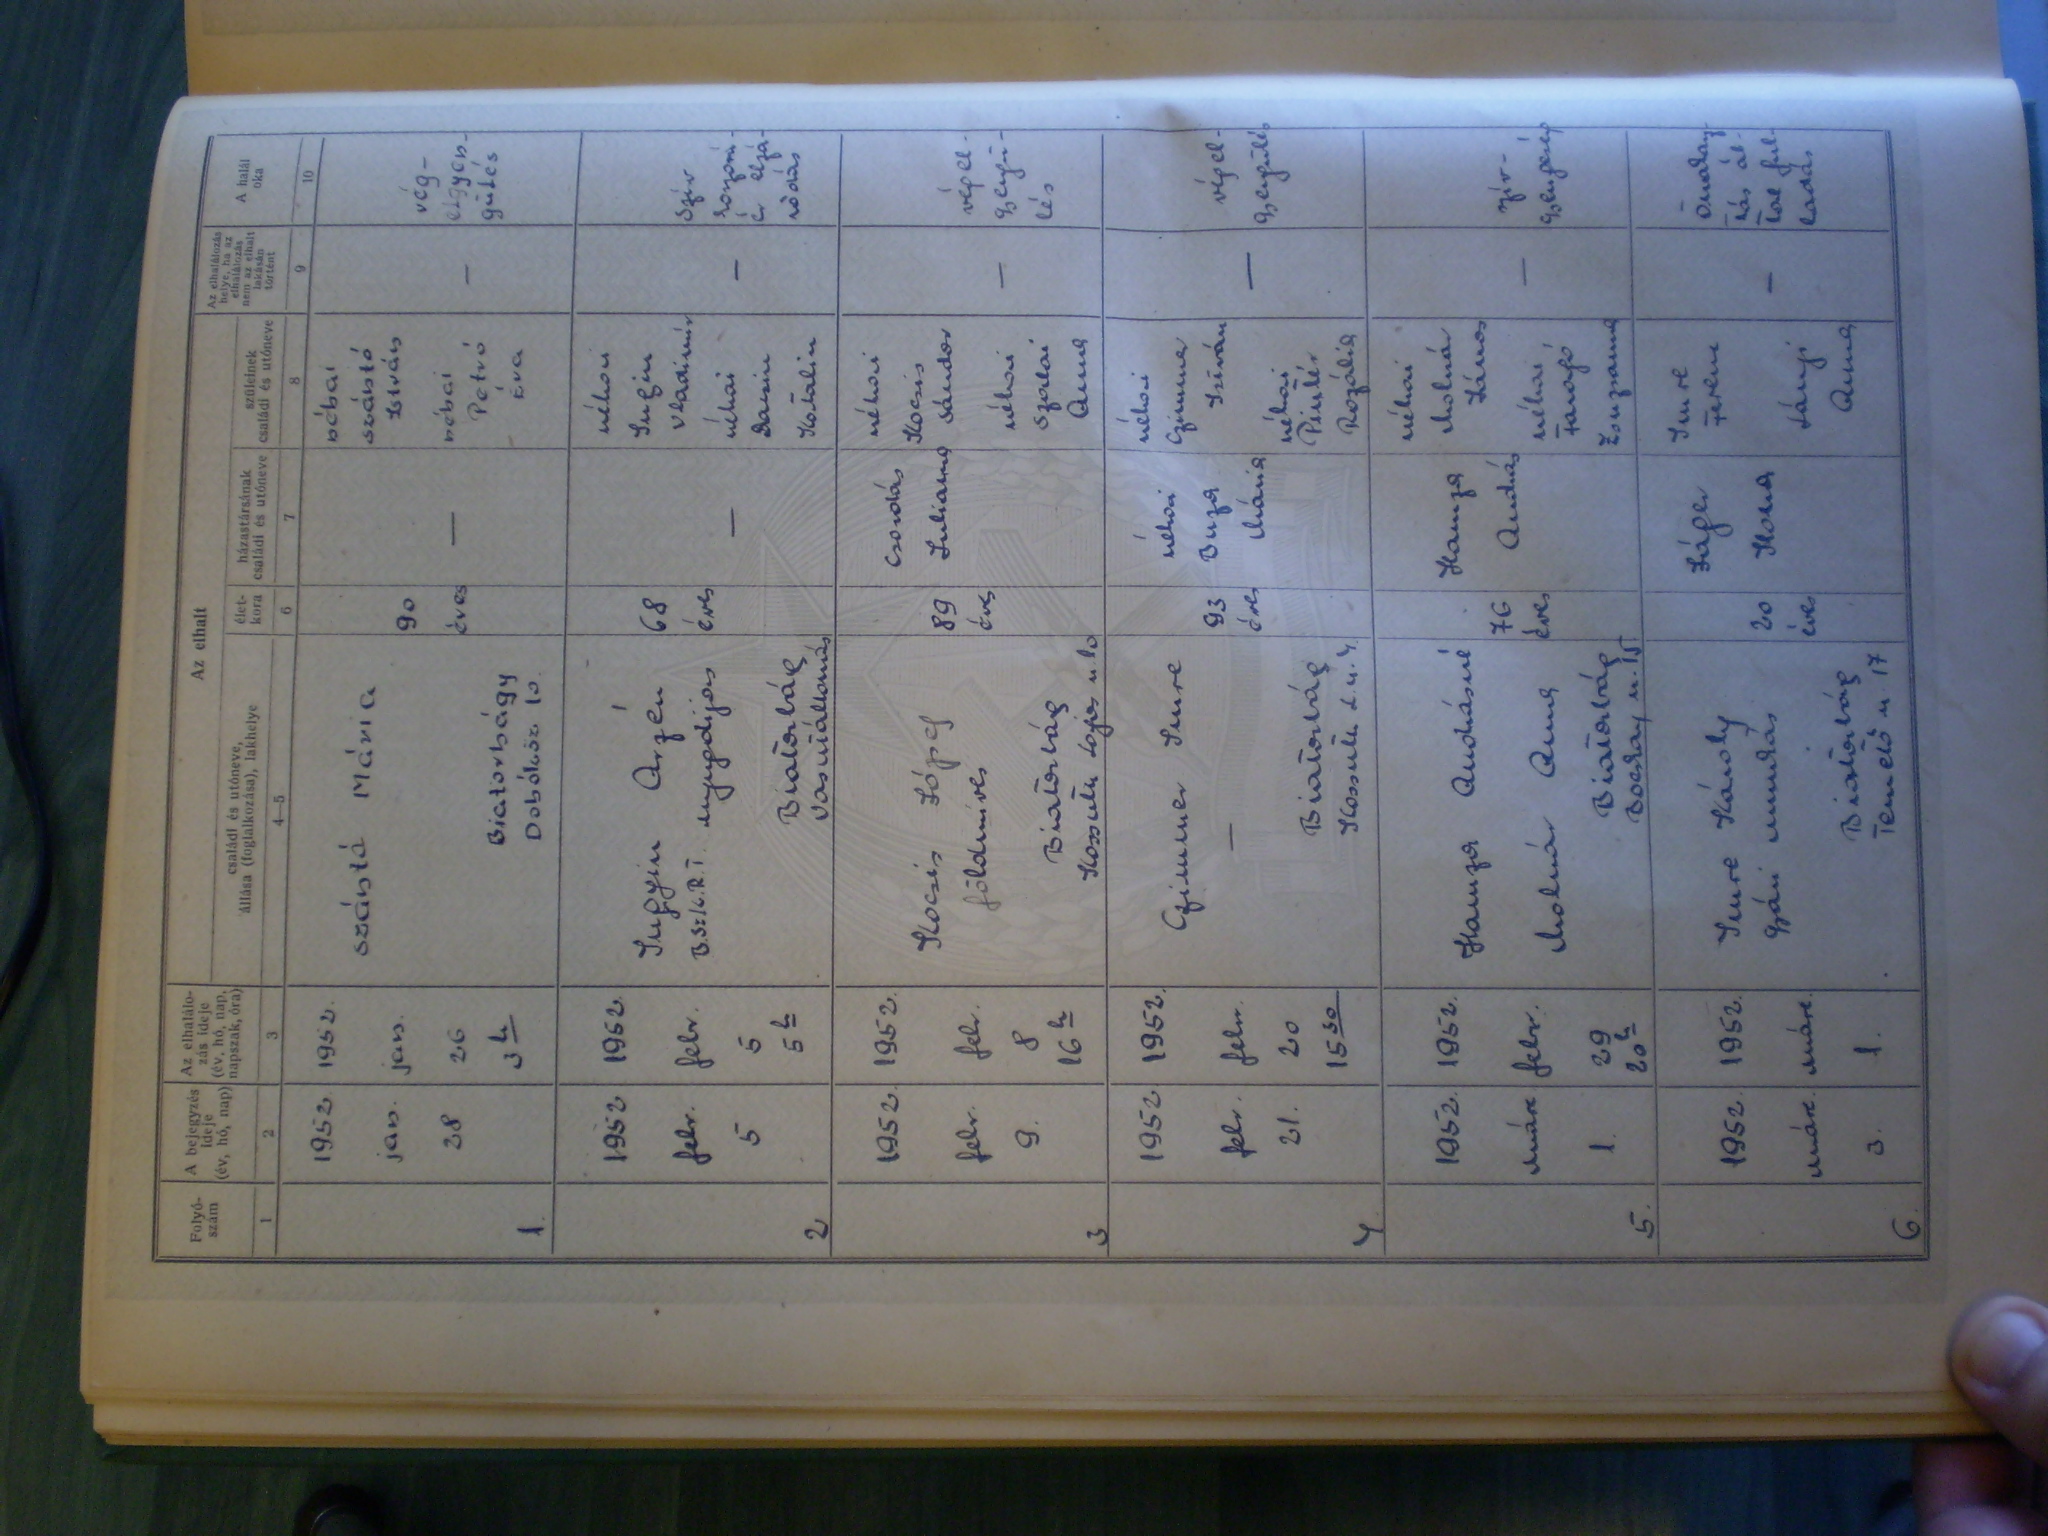 Az elhalt
Folyó-
szám
A bejegyzés
ideje
(év, hó, nap)
Az elhalálo-
zás ideje
(év, hó, nap,
napszak, óra)
családi és utóneve,
állása (foglalkozása), lakhelye
élet-
kora
házastársának
családi és utóneve
szüleinek
családi és utóneve
Az elhalálozás
helye, ha az
elhalálozás
nem az elhalt
lakásán
történt
A halál
oka
1
2
3
4—5
6
7
8
9
10
1.
1952.
jan.
28
1952.
jan.
26
3 h
Szántó Mária
Biatorbágy
Dobó köz 10.
90
éves
—
néhai
Szántó
István
néhai
Petró
Éva
—
vég-
elgyen-
gülés
2
1952
febr.
5
1952.
febr.
5
5 h
Arzén
nyugdíjas
Biatorbág
Vasútállomás
68
éves
—
néhai
Vladimir
néhai
Katalin
—
szív
3
1952.
febr.
9.
1952.
febr.
8
16 h
Kocsis József
földmíves
Biatorbág
Kossuth Lajos u. 10
89
éves
Csordás
Julianna
néhai
Kocsis
Sándor
néhai
Szalai
Anna
—
végel-
gyengü-
lés
4
1952
febr.
21.
1952.
febr.
20
15 30
Czimmer Imre
—
Biatorbág
Kossuth L. u. 4.
93
éves
néhai
Buza
Mária
néhai
Czimmer
István
néhai
Pintér
Rozália
—
végel-
gyengülés
5.
1952.
márc
1.
1952.
febr.
29
20 h
Hamza Andrásné
Molnár Anna
Biatorbág
Bocskay u. 15
76
éves
Hamza
András
néhai
Molnár
János
néhai
Faragó
Zsuzsanna
—
szív-
gyengeség
6.
1952.
márc.
3.
1952.
márc.
1.
Imre Károly
gyári munkás
Biatorbág
Temető u. 17
20
éves
Ilona
Imre
Ferenc
Lányi
Anna
—
Önakasz-
tás ál-
tal ful-
ladás